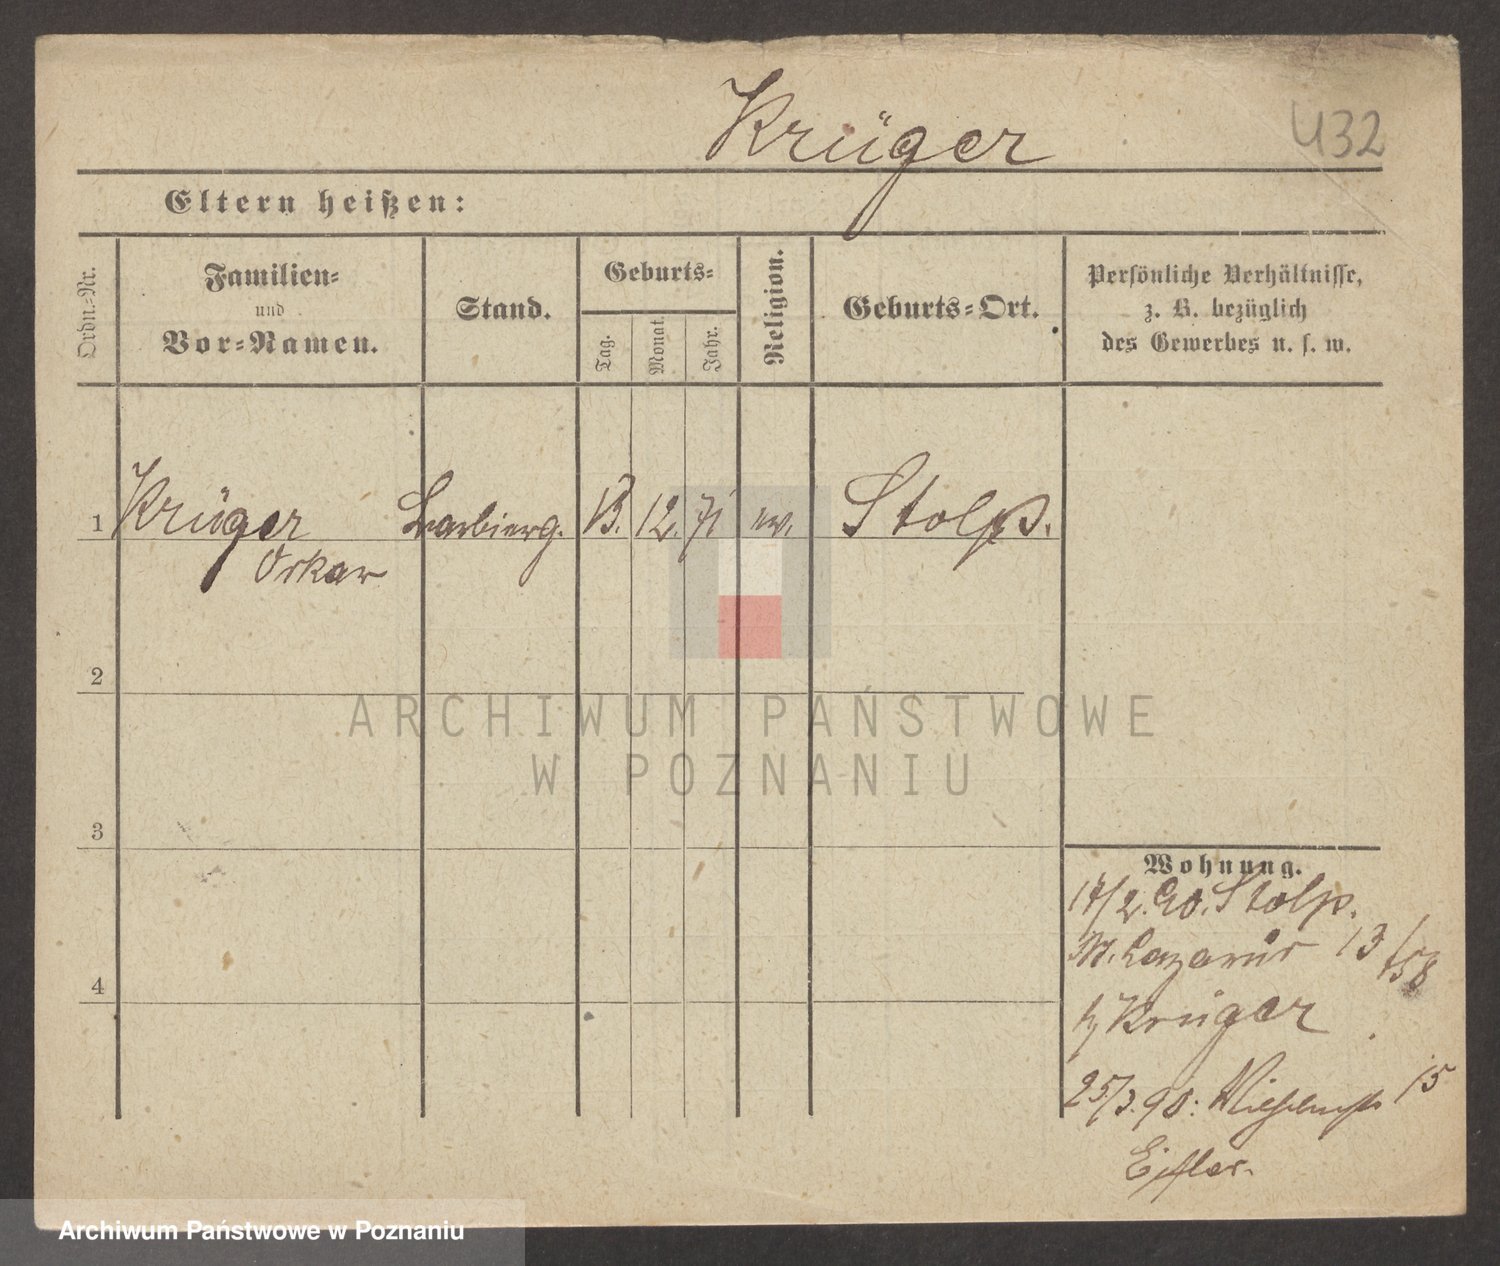 Krüger
432
Eltern heißen:
Ordn.-Nr.
Familien-
und
Vor-Namen.
Stand.
Geburts-
Tag.
Monat.
Jahr.
Religion.
Geburts-Ort.
Persönliche Verhältnisse,
z. B. bezüglich
des Gewerbes u. s. w.
1 Krüger Barbierg. 13. 12. 71 ev. Stolp.
Oskar
2
3
4
Wohnung.
17/2. 90. Stolp.
St. Lazarus 13/158
b/ Krüger
25/3. 90: 15
ARCHIWUM PAŃSTWOWE
W POZNANIU
Archiwum Państwowe w Poznaniu